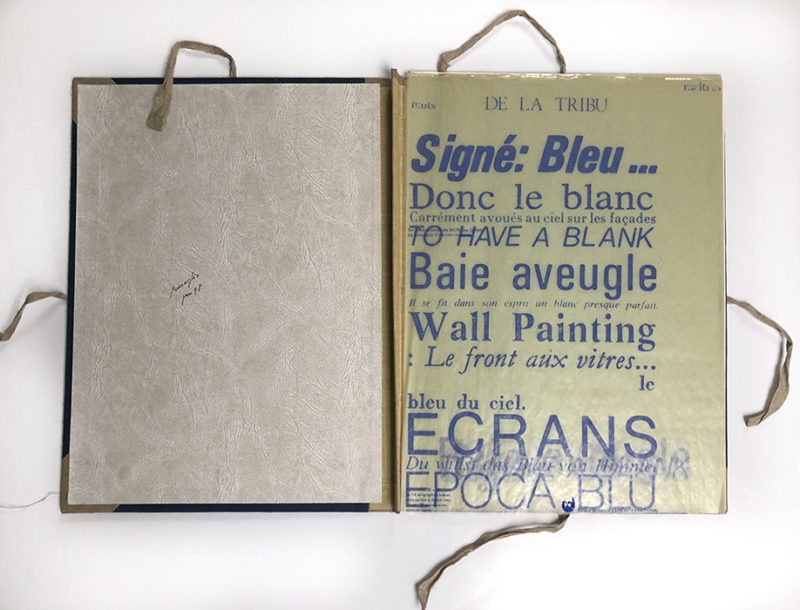 maîtres
mots DE LA TRIBU
Signé: Bleu...
Donc le blanc
Carrément avoués au ciel sur les façades
TO HAVE A BLANK
Baie aveugle
Il se fit dans son esprit un blanc presque parfait.
Wall Painting
: Le front aux vitres...
le
bleu du ciel.
ECRANS
Du willst das Blau von Himmel
EPOCA BLU